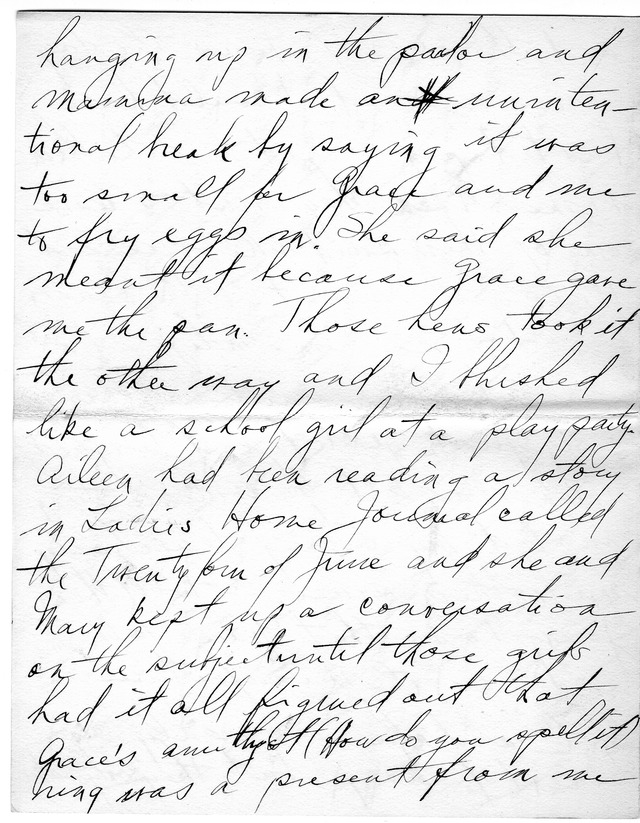 hanging up in the parlor and
mamma made an uninten-
tional break by saying it was
too small for Grace and me
to fry eggs in. She said she
meant it because Grace gave
me the pan. Those hens took it
the other way and I blushed
like a school girl at a play party.
Aileen had been reading a story
in Ladies Home Journal called
the Twenty forn of June and she and
Mary kept up a conversation
on the subject until those girls
had it all figured out that
Grace's amythest (How do you spell it)
ring was a present from me